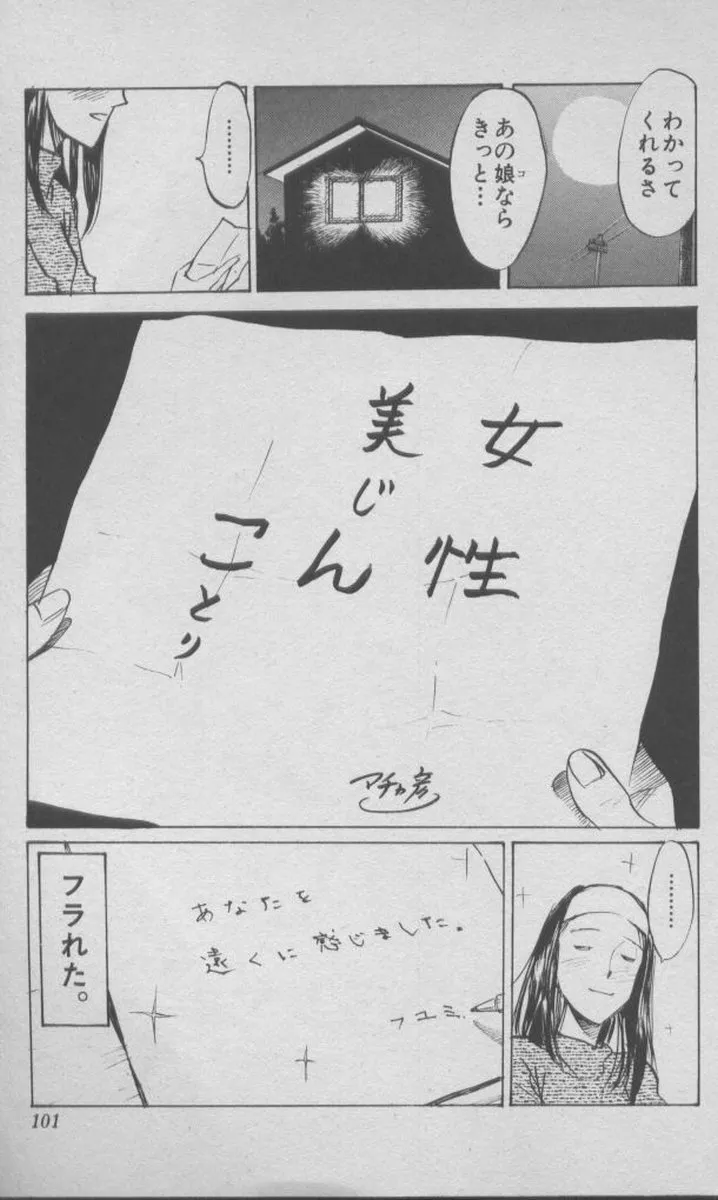 わかって
くれるさ
あの娘なら
コ
きっと…
………
女
性
美
じ
ん
こ
とり
マチャ彦
………
あなたを
遠くに感じました。
フユミ.
フラれた。
101